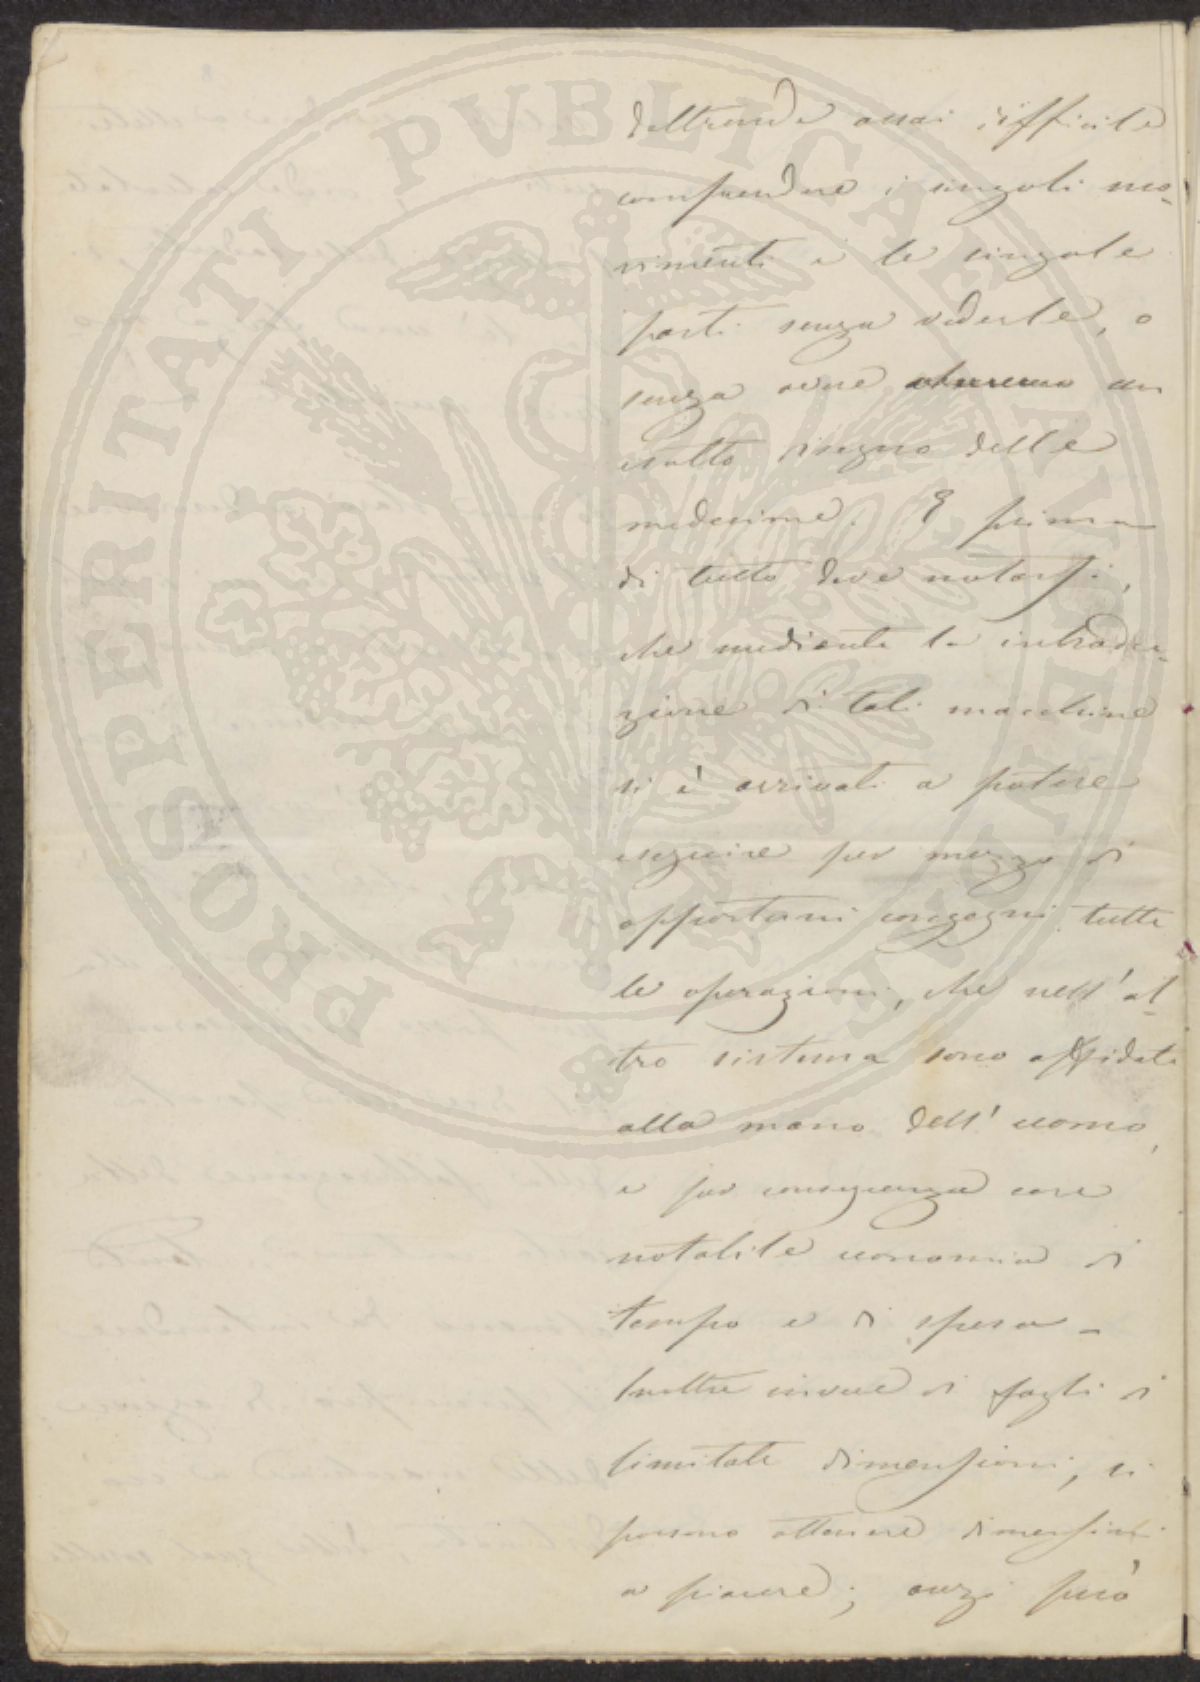 PROSPERITATI PVBLICAE AVGENDAE
dell'resto assai difficile
comprendere i singoli mo-
vimenti e le singole
parti senza vederle, o
senza avere almeno un
esatto disegno delle
medesime. E prima
di tutto deve notarsi,
che mediante la introdu-
zione di tali macchine
si è arrivati a potere
eseguire per mezzo di
opportuni congegni tutte
le operazioni, che nell'al-
tro sistema sono affidate
alla mano dell'uomo,
e per conseguenza con
notabile economia di
tempo e di spesa -
Inoltre invece di fogli di
limitate dimensioni, si
possono ottenere dimensioni
a piacere; anzi può